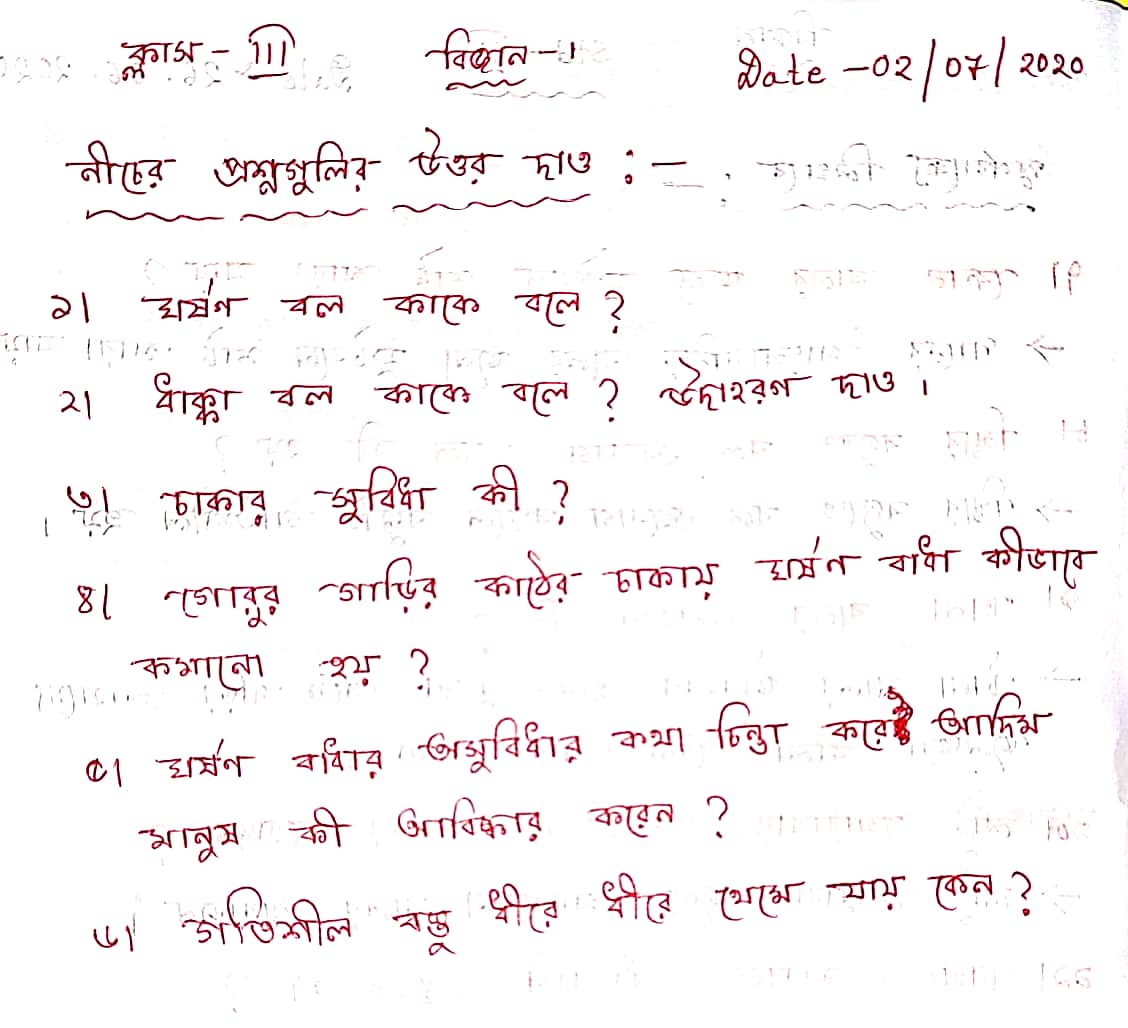 ক্লাস - III বিজ্ঞান - Date - 02/07/2020
নীচের প্রশ্নগুলির উত্তর দাও :-
১। ঘর্ষণ বল কাকে বলে ?
২। ধাক্কা বল কাকে বলে ? উদাহরণ দাও ।
৩। চাকার সুবিধা কী ?
৪। গোরুর গাড়ির কাঠের চাকায় ঘর্ষণ বাধা কীভাবে
কমানো হয় ?
৫। ঘর্ষণ বাধার অসুবিধার কথা চিন্তা করে আদিম
মানুষ কী আবিষ্কার করেন ?
৬। গতিশীল বস্তু ধীরে ধীরে থেমে যায় কেন ?